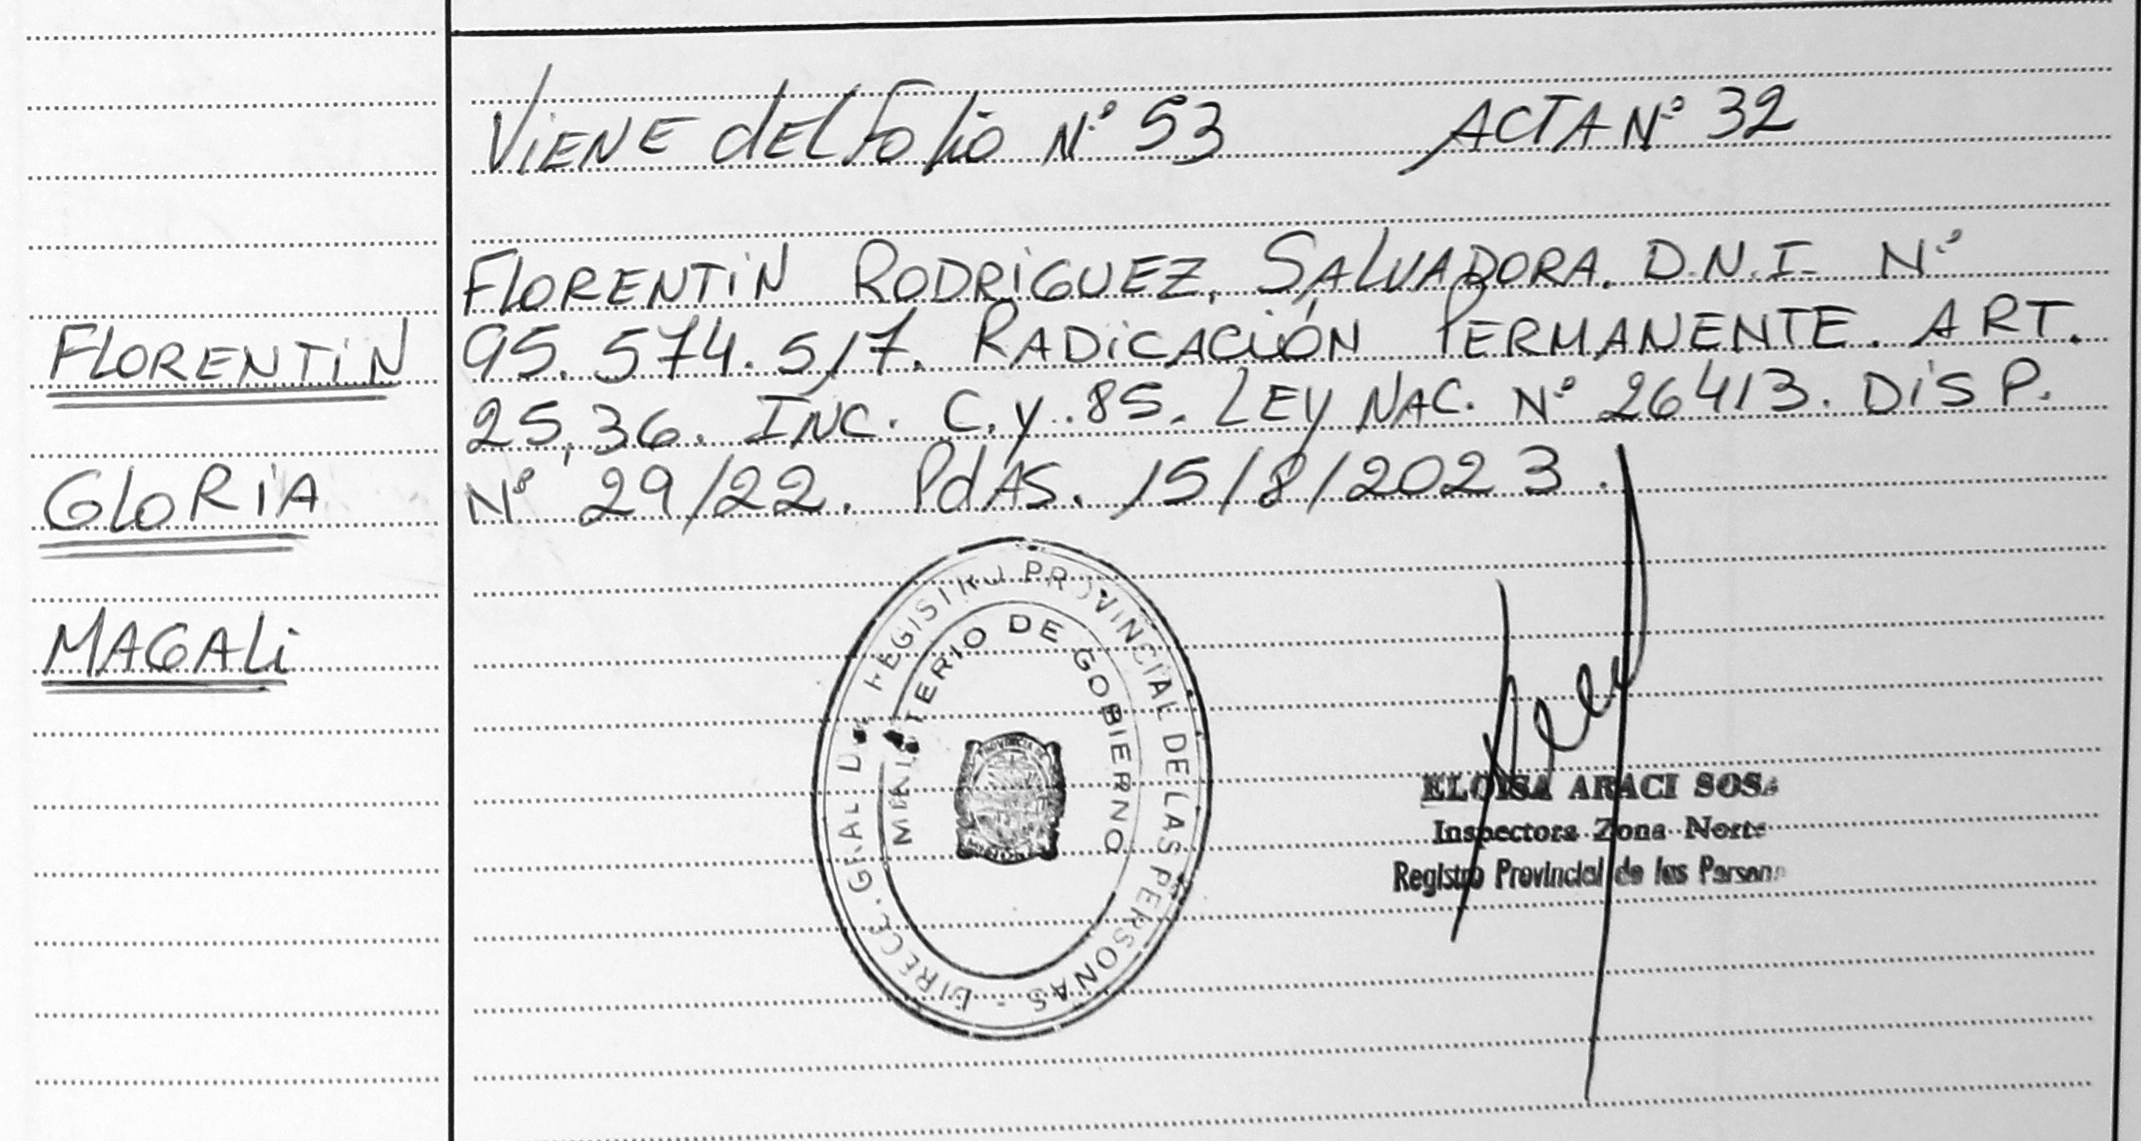 VIENE DEL FOLIO Nº 53 ACTA Nº 32
FLORENTIN RODRIGUEZ, SALVADORA. D.N.I. Nº
95.574.517. RADICACIÓN PERMANENTE. ART.
25,36. INC. C.y.85. LEY NAC. Nº 26413. DISP.
Nº 29/22. PdAS. 15/8/2023.
FLORENTIN
GLORIA
MAGALI
DIRECC. GRAL DEL REGISTRO PROVINCIAL DE LAS PERSONAS -
MINISTERIO DE GOBIERNO
PROVINCIA DE
MISIONES
ELOISA ARACI SOSA
Inspectora Zona Norte
Registro Provincial de las Personas